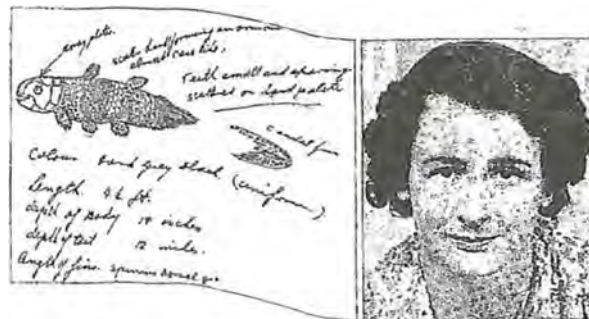 bony plate.
scales hard forming an armour
almost carr like,
Teeth small and
scattered on lip and palate
caudal fin
Colour hard grey black (uniform)
Length 4½ ft.
depth of Body 18 inches
depth of tail 12 inches.
length of fins spinous dorsal